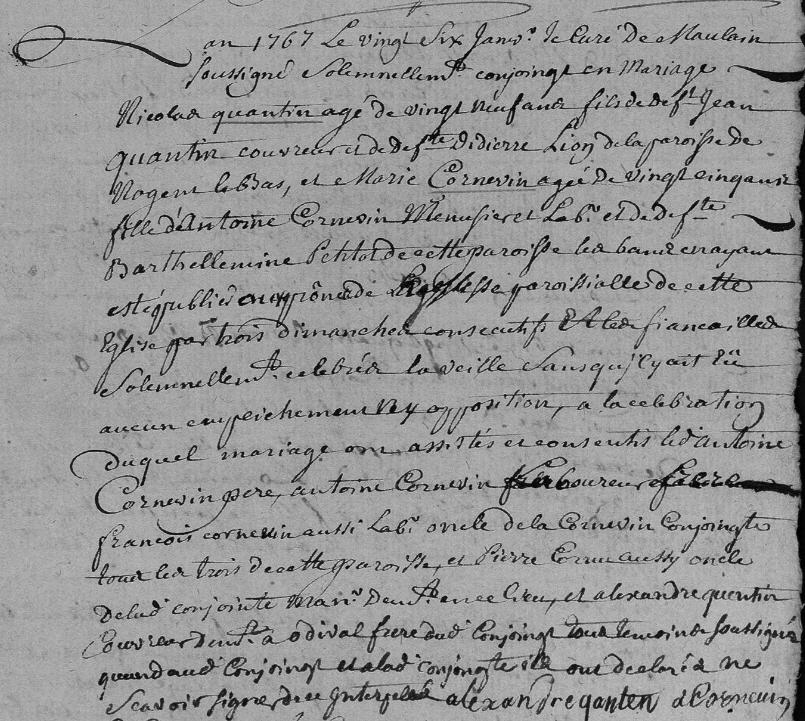 an 1767 Le vingt Six Janvr. Je Curé De Maulain
Soussigné Solemnellemt. conjoingt en Mariage
Nicolas quantin agé de vingt neuf ans fils de deft. Jean
quantin couvreur et de Defte. Didierre Lion de la paroisse De
Nogent le Bas, et Marie Cornevin agée De vingt cinq ans
fille d'Antoine Cornevin Menusier et Labr. et de defte.
Barthellemine Petitot de cette paroisse les bans en ayant
esté publiés aux prônes de paroissialles de cette
Eglise par trois dimanches consecutifs Et les fiancailles
Solemnellemt. celebrées la veille Sans qu'il y ait Eü
aucun empeichement Ny opposition, a la celebration
Duquel mariage ont assistés et consentis led. antoine
Cornevin pere, antoine Cornevin
francois cornevin aussi Labr. oncle de la Cornevin Conjoingte
tous les trois de cette paroisse, et Pierre Cornu aussy oncle
De lad. conjointe Manr. Demt. en ce lieu, et alexandre quentin
Couvreur Demt. a odival frere dud. Conjoingt tous temoins Soussignés
quand aud. Conjoingt et a lad. conjoingte ils ont declarés ne
Scavoir signer de ce Interpelés alexandre qanten A Cornevin